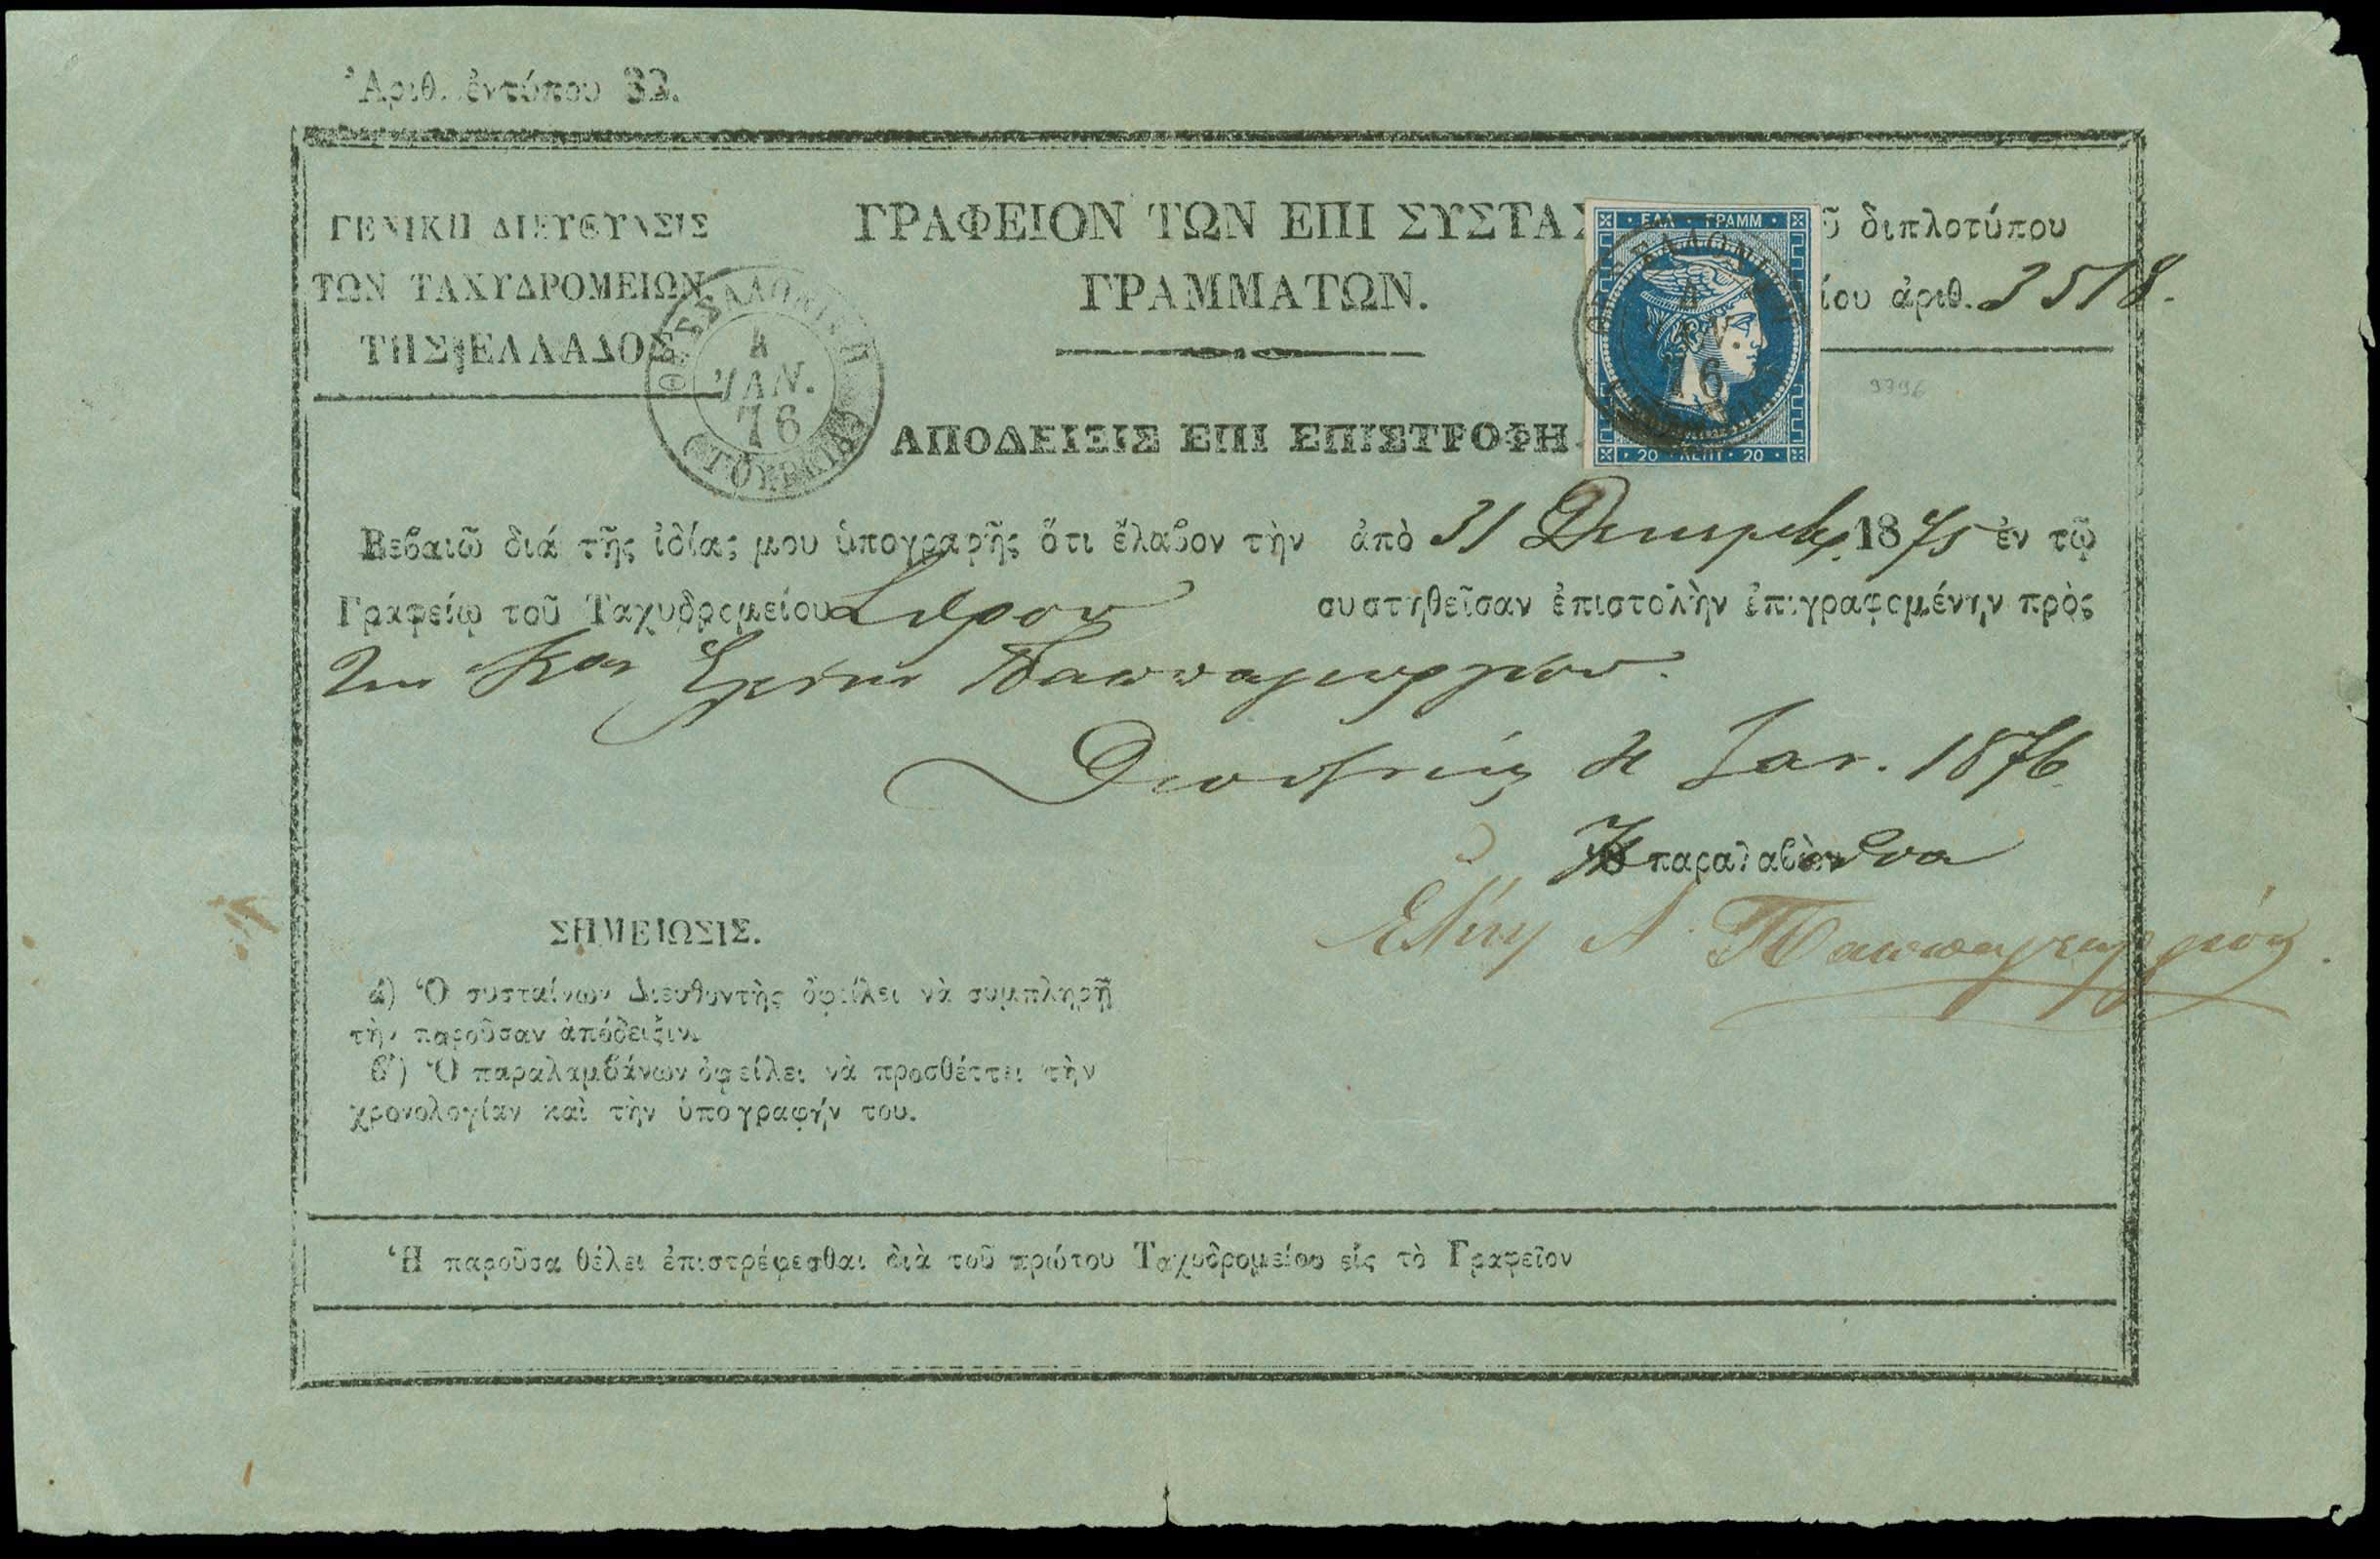 Ἀριθ. ἐντύπου 32.
ΓΕΝΙΚΗ ΔΙΕΥΘΥΝΣΙΣ
ΤΩΝ ΤΑΧΥΔΡΟΜΕΙΩΝ
ΤΗΣ ΕΛΛΑΔΟΣ
ΘΕΣΣΑΛΟΝΙΚΗ
4
ΙΑΝ.
76
(ΤΟΥΡΚΙΑ)
ΓΡΑΦΕΙΟΝ ΤΩΝ ΕΠΙ ΣΥΣΤΑΣ
ΓΡΑΜΜΑΤΩΝ.
ΑΠΟΔΕΙΞΙΣ ΕΠΙ ΕΠΙΣΤΡΟΦΗ
ΕΛΛ · ΓΡΑΜΜ
4
ΙΑΝ.
76
20 · ΛΕΠΤ · 20
ῦ διπλοτύπου
ίου ἀριθ. 3518.
9796
Βεβαιῶ διά τῆς ἰδίας μου ὑπογραφῆς ὅτι ἔλαβον τὴν ἀπὸ 31 Δεκεμβρ. 1875 ἐν τῷ
Γραφείῳ τοῦ Ταχυδρομείου Σύρου συστηθεῖσαν ἐπιστολὴν ἐπιγραφομένην πρὸς
την Καν Ελένην Παππαγεωργίου.
4 Ιαν. 1876
Ἡ παραλαβοῦσα
Ελένη Λ. Παππαγεωργίου.
ΣΗΜΕΙΩΣΙΣ.
α) Ὁ συσταίνων Διευθυντὴς ὀφείλει νὰ συμπληρῇ
τὴν παροῦσαν ἀπόδειξιν.
β) Ὁ παραλαμβάνων ὀφείλει νὰ προσθέττει τὴν
χρονολογίαν καὶ τὴν ὑπογραφήν του.
Ἡ παροῦσα θέλει ἐπιστρέφεσθαι διὰ τοῦ πρώτου Ταχυδρομείου εἰς τὸ Γραφεῖον